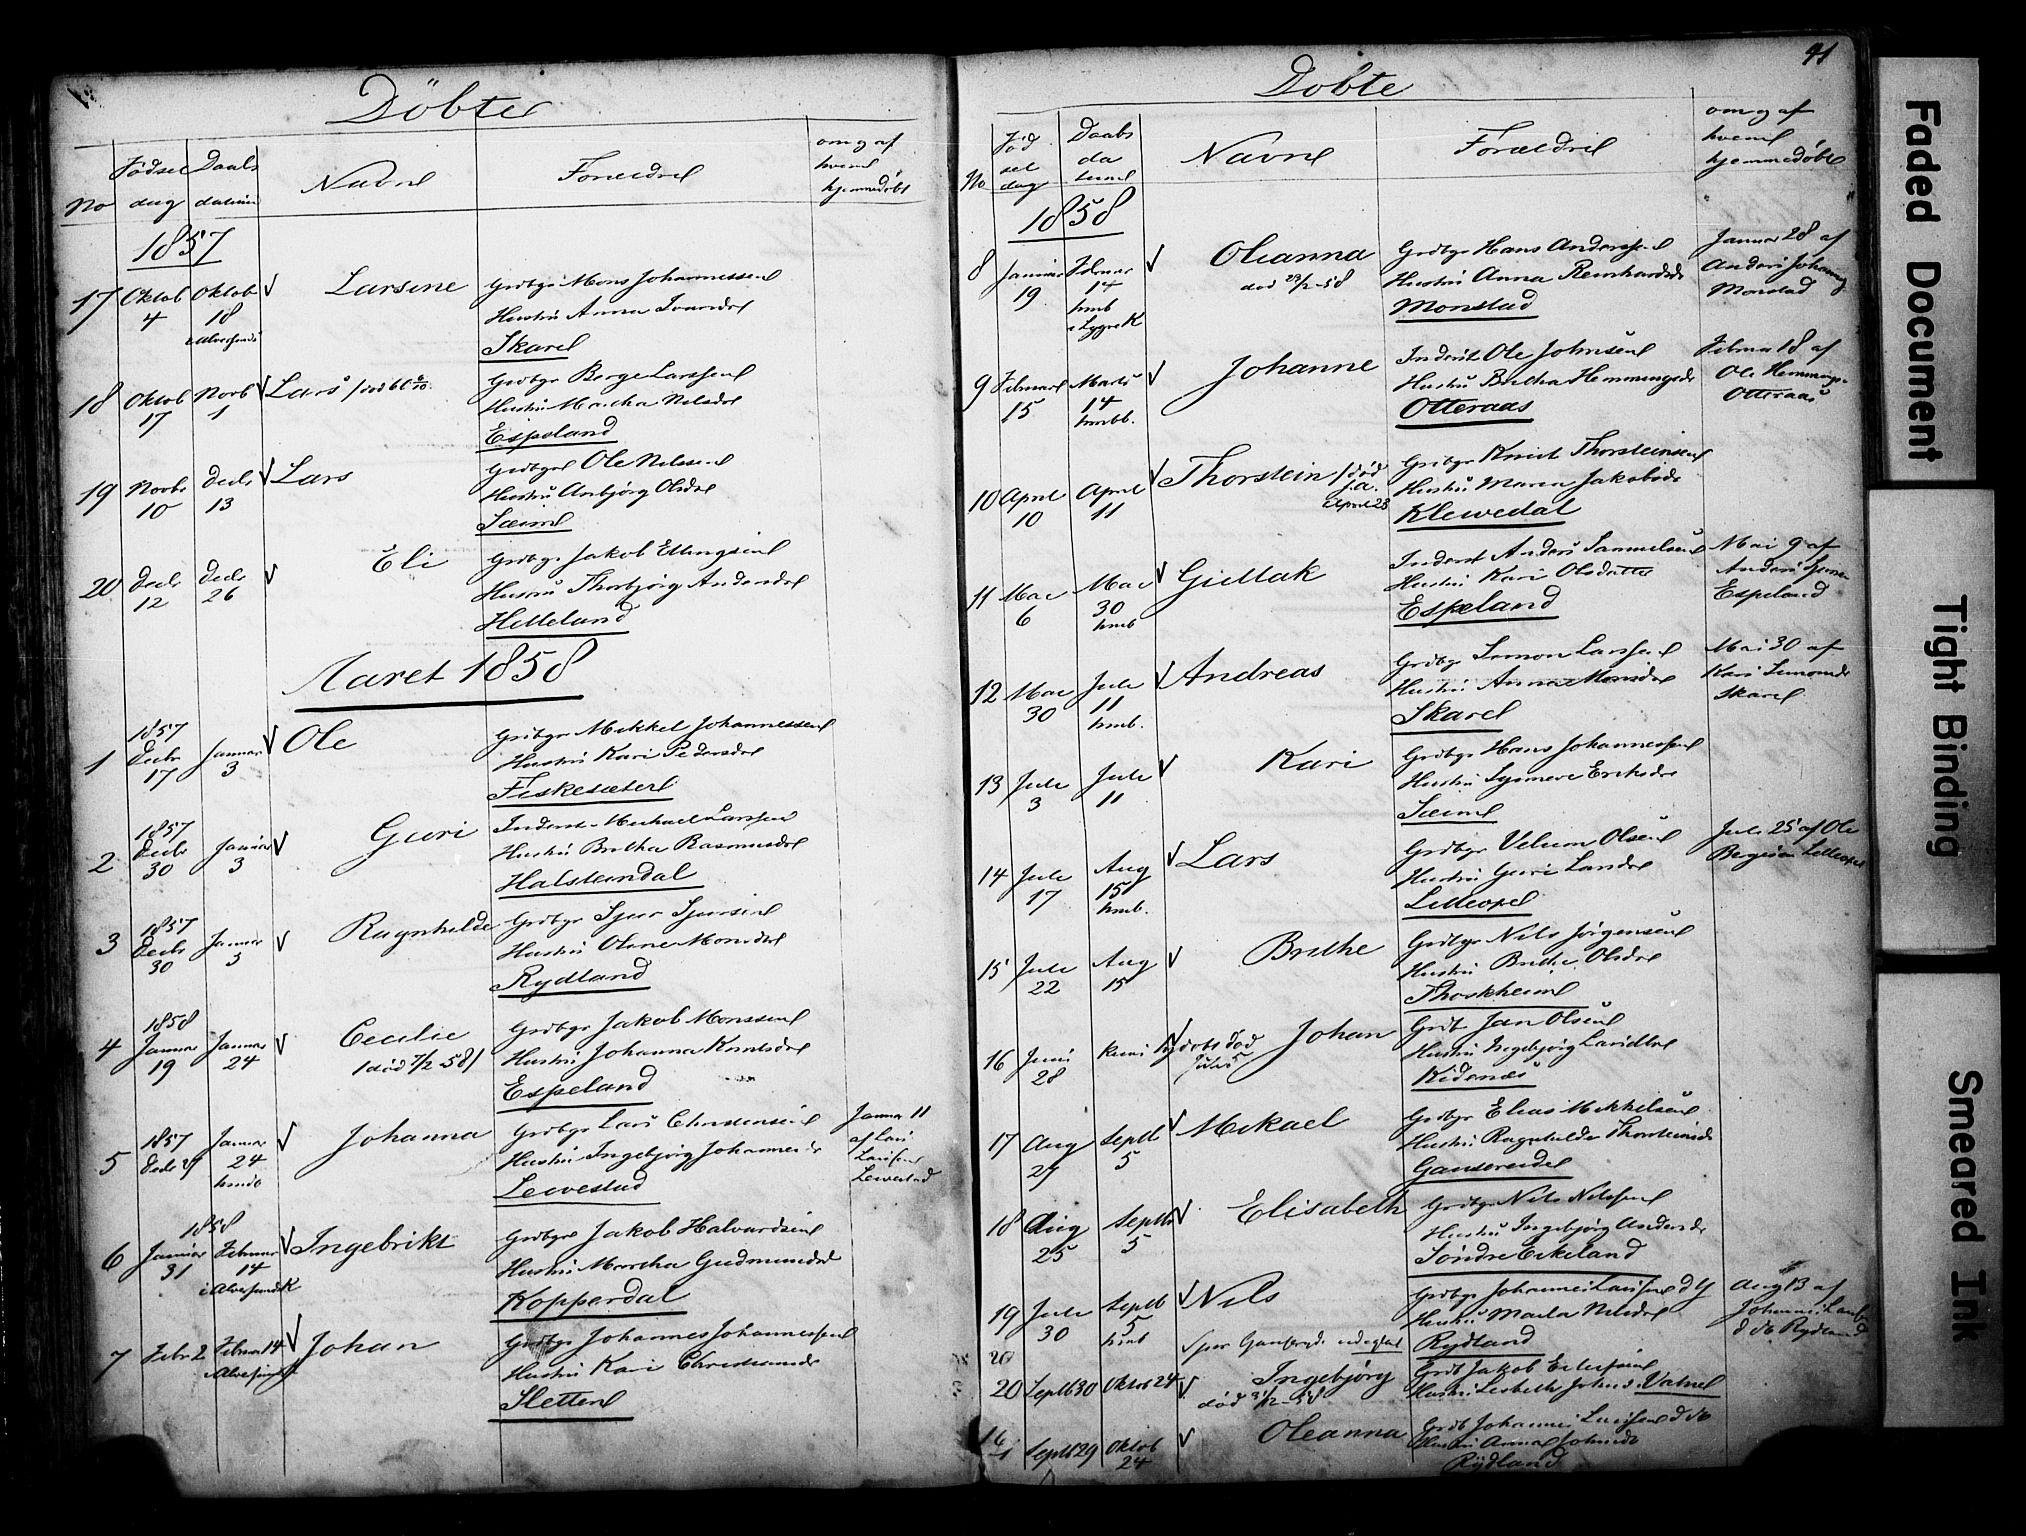 Döbte
No
Födsel
dag
Daabs
datum
Navne
Forældre
om og af
hvem
hjemmedöbt
1857
17 Oktob 4 Oktob 18 Larsine Grdbgr Mons Johannessen
Hustru Anna Ivarsdr
Skarel
18 Oktob 17 Novb 1 Lars Grdbgr Berge Larssen
Hustru Martha Nilsdr
Espeland
19 Novbr 10 Decb 13 Lars Grdbgr Ole Nilssen
Hustru Anbjörg Olsdr
Sæim
20 Decb 12 Decb 26 Eli Grdbgr Jakob Ellingsen
Hustru Thorbjörg Andersdr
Helleland
Aaret 1858
1 1857 Decbr 17 Januar 3 Ole Grdbgr Mikkel Johannessen
Hustru Kari Pedersdr
Fiskesæter
2 1857 Decbr 30 Januar 3 Guri Inderst Michael Larssen
Hustru Britha Rasmusdr
Halsteindal
3 1857 Decbr 30 Januar 3 Ragnhilde Grdbgr Sjur Sjursen
Hustru Oline Monsdr
Rydland
4 1858 Januar 19 Januar 24 Cecilie Grdbgr Jakob Monssen
död 7/2-58 Hustru Johanna Knutsdr
Espeland
5 1857 Januar 24 Johanna Grdbgr Lars Christensen Januar 11
Hustru Ingebjörg Johannesdr af Lars
Levvestad
6 1858 Januar 31 Februar 14 Ingebrikt Grdbgr Jakob Halvardsen
Hustru Martha Gudmundsdr
Kopperdal
7 Febr 2 Februar 14 Johan Grdbgr Johannes Johannessen
Hustru Kari Christiansdr
Sletten
41
Döbte
No
Föd
sel
dag
Daabs
da
tum
Navne
Forældre
om og af
hvem
hjemmedöbt
1858
8 Januar 19 Februar 14 hmb Oleanna Grdbgr Hans Anderssen Januar 28 af
död 23/2-58 Hustru Anna Reinhardsdr
Monstad Monstad
9 Februar 15 Marts 14 hmb. Johanne Inderst Ole Johnsen Februar 18 af
Hustru Britha Hemmingsdr Ole Hemmings-
Otteraas Otteraas
10 April 10 April 11 Thorstein död Grdbgr Knut Thorsteinsen
April 23 Hustru Maren Jakobsdr
Klevedal
11 Mai 6 Mai 30 hmb Gjellak Inderst Anders Samuelsen Mai 9 af
Hustru Kari Olsdatter Anders
Espeland Espeland
12 Mai 30 Juli 11 hmb. Andreas Grdbgr Simon Larssen Mai 30 af
Hustru Anna Monsdr Kari Simonsdr
Skarel Skarel
13 Juli 3 Juli 11 Kari Grdbgr Hans Johannessen
Hustru Synneve Eriksdr
Sæim
14 Juli 17 Aug 15 hmb. Lars Grdbgr Velum Olsen Juli 25 af Ole
Hustru Guri Larsdr
15 Juli 22 Aug 15 Brithe Grdbgr Nils Jörgensen
Hustru Brithe Olsdr
Thoskheim
16 Juni 28 Johan Grdb Jan Olsen
Hustru Ingebjörg
Kidenæs
17 Aug 27 Septb 5 Mikael Grdbgr Elias Mikkelsen
Hustru Ragnhilde Thorsteinsdr
18 Aug 25 Septb 5 Elisabeth Grdbgr Nils Nilssen
Hustru Ingebjörg Andersdr
Söndre Eikeland
19 Juli 30 Septb 5 hmb Nils Grdbgr Johannes Larssen d y Aug 13 af
Hustru Marta Nilsdr Johannes
Rydland d y Rydland
20
20 Septb 30 Oktob 24 Ingebjörg Grdb Jakob
Hustru Lisbeth Johnsdr Vatnel
Septb 29 Oktob 24 Oleanna Grdb Johannes
Hustru Anna Johnsdr
Rydland
Faded Document
Tight Binding
Smeared Ink